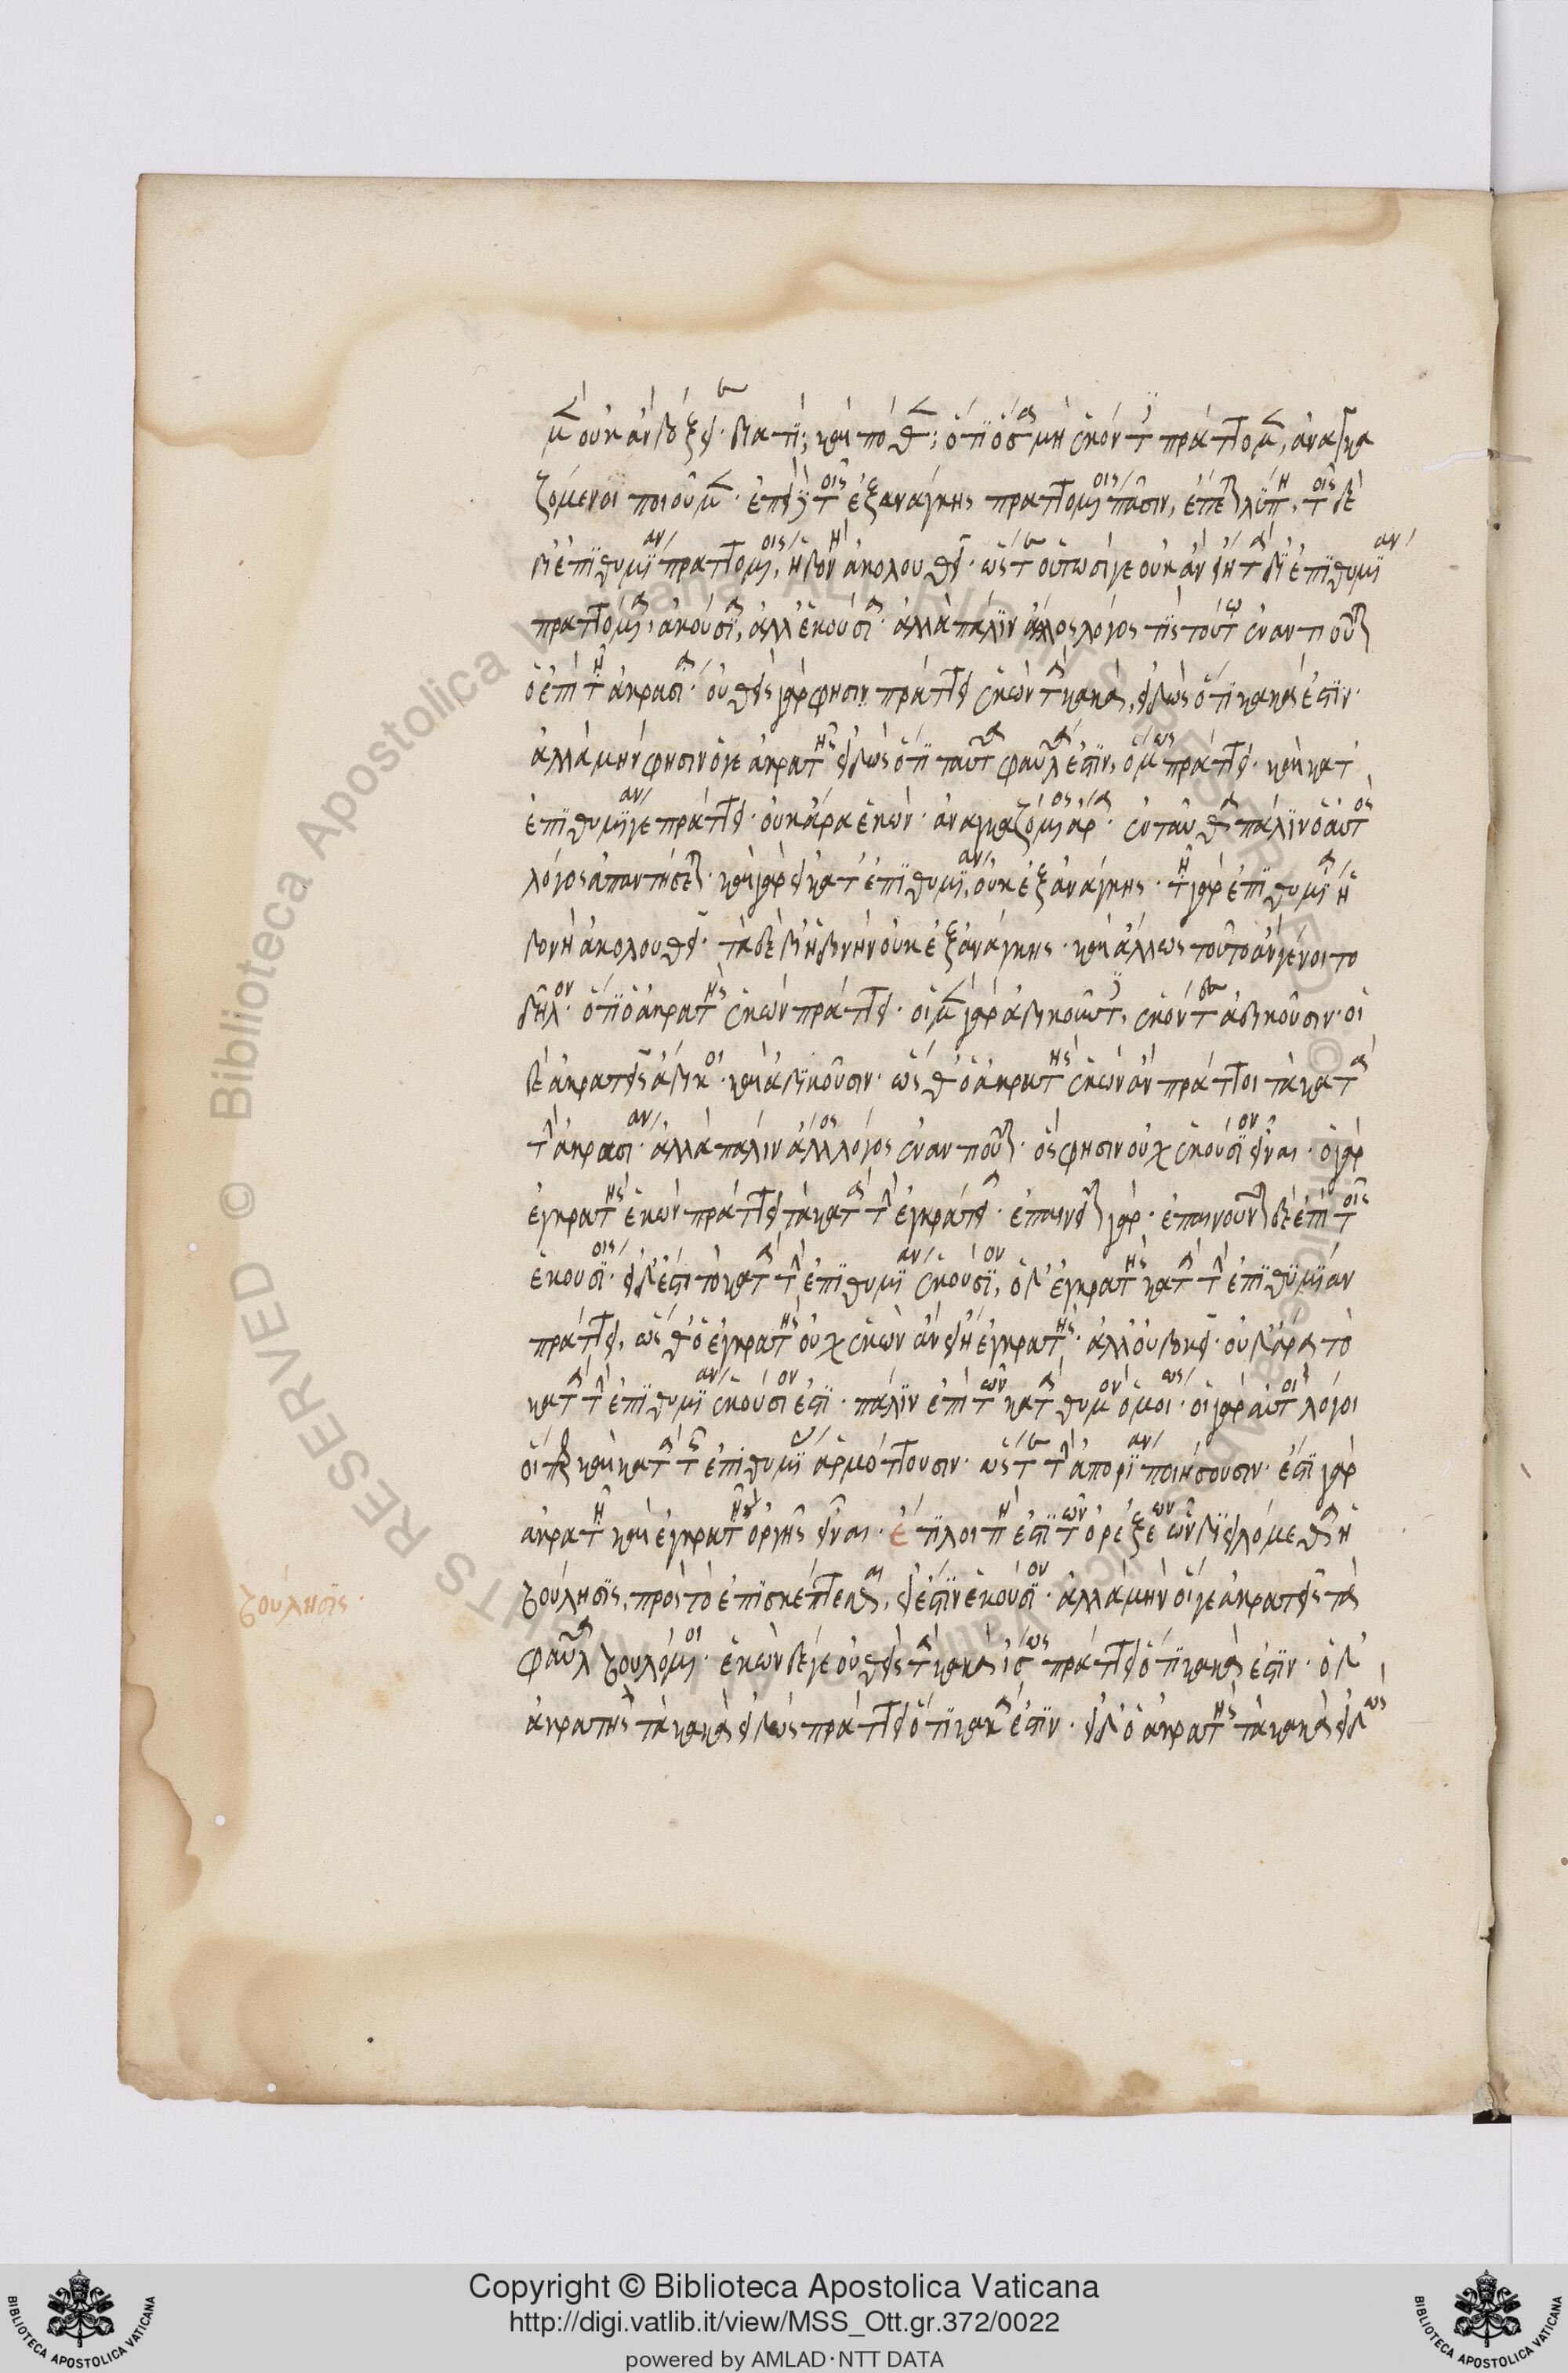 μεν οὐκ ἂν δόξειε. διὰ τί; καὶ πόθεν; ὅτι ὅσα μὴ ἑκόντες πράττομεν, ἀναγκα
ζόμενοι ποιοῦμεν. ἐπεὶ τοῖς ἐξανάγκης πραττομένοις πᾶσιν, ἕπεται λύπη, τοῖς δὲ
δι' ἐπιθυμίαν πραττομένοις, ἡδονὴ ἀκολουθεῖ. ὥστε οὕτωσίγε οὐκ ἂν εἴη τὰ δι' ἐπιθυμίαν
πραττόμενα, ἀκούσια, ἀλλ' ἑκούσια. ἀλλὰ πάλιν ἄλλος λόγος τίς τούτω ἐναντιοῦται
ὁ ἐπὶ τῆς ἀκρασίας. οὐθεὶς γὰρ φησιν πράττει ἑκὼν τὰ κακὰ, εἰδὼς ὅτι κακά ἐστιν.
ἀλλὰ μήν φησιν ὅγε ἀκρατὴς εἰδὼς ὅτι ταῦτα φαῦλά ἐστιν, ὅμως πράττει. καὶ κατ'
ἐπιθυμίαν γε πράττει. οὐκ ἄρα ἑκών. ἀναγκαζόμενος ἄρα. ἐνταῦθα πάλιν ὁ αὐτὸς
λόγος ἀπαντήσεται. καὶ γὰρ εἰ κατ' ἐπιθυμίαν, οὐκ ἐξ ἀνάγκης. τῆ γὰρ ἐπιθυμία ἡ
δονὴ ἀκολουθεῖ. τὰ δὲ δι' ἡδονὴν οὐκ ἐξ ἀνάγκης. καὶ ἄλλως τοῦτο ἂν γένοιτο
δῆλον. ὅτι ὁ ἀκρατὴς ἑκὼν πράττει. οἱ μὲν γὰρ ἀδικοῦντες, ἑκόντες ἀδικοῦσιν. οἱ
δὲ ἀκρατεῖς ἄδικοι. καὶ ἀδικοῦσιν. ὥσθ' ὁ ἀκρατὴς ἑκὼν ἂν πράττοι τὰ κατὰ
τὴν ἀκρασίαν. ἀλλὰ πάλιν ἄλλος λόγος ἐναντιοῦται. ὅς φησιν οὐχ ἑκούσιον εἶναι. ὁ γὰρ
ἐγκρατὴς ἑκὼν πράττει τὰ κατὰ τὴν ἐγκράτειαν. ἐπαινεῖται γὰρ. ἐπαινοῦνται δὲ ἐπὶ τοῖς
ἑκουσίοις. εἰ δ' ἐστὶ τὸ κατὰ τὴν ἐπιθυμίαν ἑκούσιον, ὁ δ' ἐγκρατὴς κατὰ τὴν ἐπιθυμίαν
πράττει, ὥσθ' ὁ ἐγκρατὴς οὐχ ἑκὼν ἂν εἴη ἐγκρατής. ἀλλ' οὐ δοκεῖ. οὐδ' ἄρα τὸ
κατὰ τὴν ἐπιθυμίαν ἑκούσιόν ἐστι. πάλιν ἐπὶ τῶν κατὰ θυμὸν ὁμοίως. οἱ γὰρ αὐτοὶ λόγοι
οἵπερ καὶ κατὰ τῆς ἐπιθυμίας ἁρμόττουσιν. ὥστε τὴν ἀπορίαν ποιήσουσιν. ἔστι γὰρ
ἀκρατῆ καὶ ἐγκρατῆ ὀργῆς εἶναι. ἔτι λοιπή ἐστι τῶν ὀρέξεων ὧν διειλόμεθα ἡ
βούλησις, πρὸς τὸ ἐπισκέπτεσθαι, εἰ ἔστιν ἑκούσιον. ἀλλὰ μὴν οἵγε ἀκρατεῖς τὰ
φαῦλα βουλόμενοι. ἑκὼν δέγε οὐθεὶς τὰ κακὰ ἴσως πράττει ὅτι κακά ἐστιν. ὁ δ'
ἀκρατὴς τὰ κακὰ εἰδὼς πράττει ὅτι κακά ἐστιν. εἰ δ' ὁ ἀκρατὴς τὰ κακὰ εἰδὼς
βούλησις.
Copyright © Biblioteca Apostolica Vaticana
http://digi.vatlib.it/view/MSS_Ott.gr.372/0022
powered by AMLAD·NTT DATA